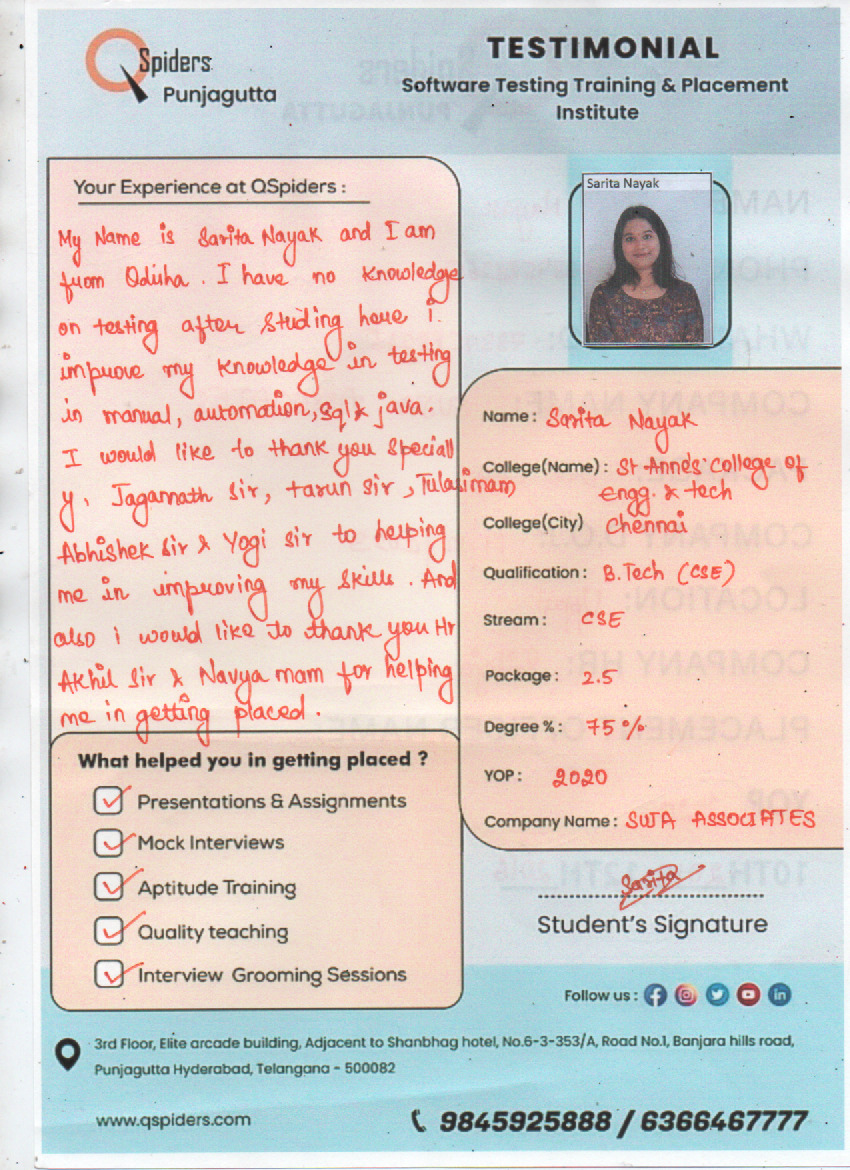 Spiders
Punjagutta
TESTIMONIAL
Software Testing Training & Placement
Institute
Your Experience at QSpiders :
My Name is Sarita Nayak and I am
from Odisha. I have no knowledge
on testing after studing here i
improve my knowledge in testing
in manual, automation, sql & java.
I would like to thank you speciall
y, Jagannath sir, tarun sir, Tulasimam
Abhishek sir & Yogi sir to helping
me in improving my skills. And
also i would like to thank you Hr
Akhil sir & Navya mam for helping
me in getting placed.
What helped you in getting placed ?
Presentations & Assignments
Mock Interviews
Aptitude Training
Quality teaching
Interview Grooming Sessions
Sarita Nayak
Name : Sarita Nayak
College(Name) : St Anne's college of
engg. & tech
College(City) Chennai
Qualification : B.Tech (CSE)
Stream : CSE
Package : 2.5
Degree % : 75 %
YOP : 2020
Company Name : SUTA ASSOCIATES
Sarita
Student's Signature
Follow us :
3rd Floor, Elite arcade building, Adjacent to Shanbhag hotel, No.6-3-353/A, Road No.1, Banjara hills road,
Punjagutta Hyderabad, Telangana - 500082
www.qspiders.com
9845925888 / 6366467777